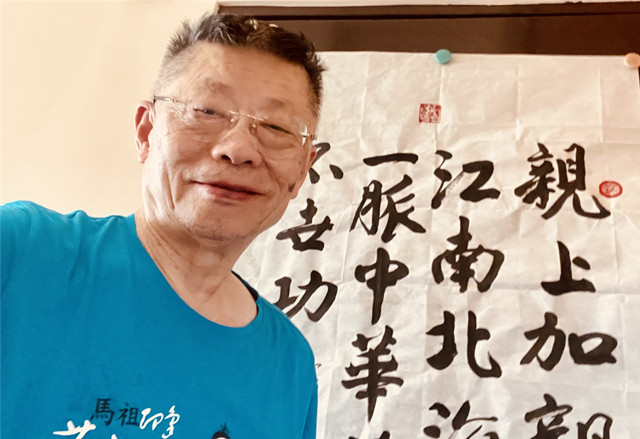 親上加親
江南北海
一脈中華
不世功
馬祖